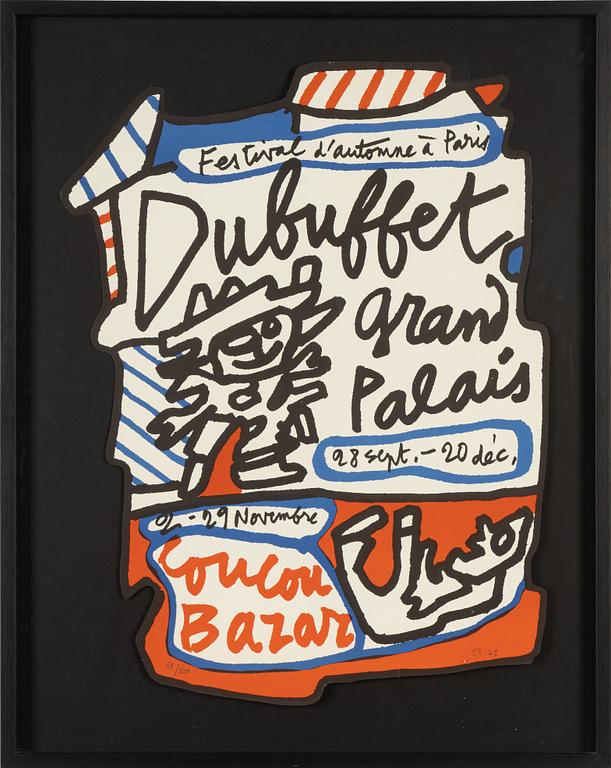 Festival d'automne à Paris
Dubuffet
grand
Palais
28 sept. - 20 déc.
2 - 29 Novembre
Coucou
Bazar
J.D. 73